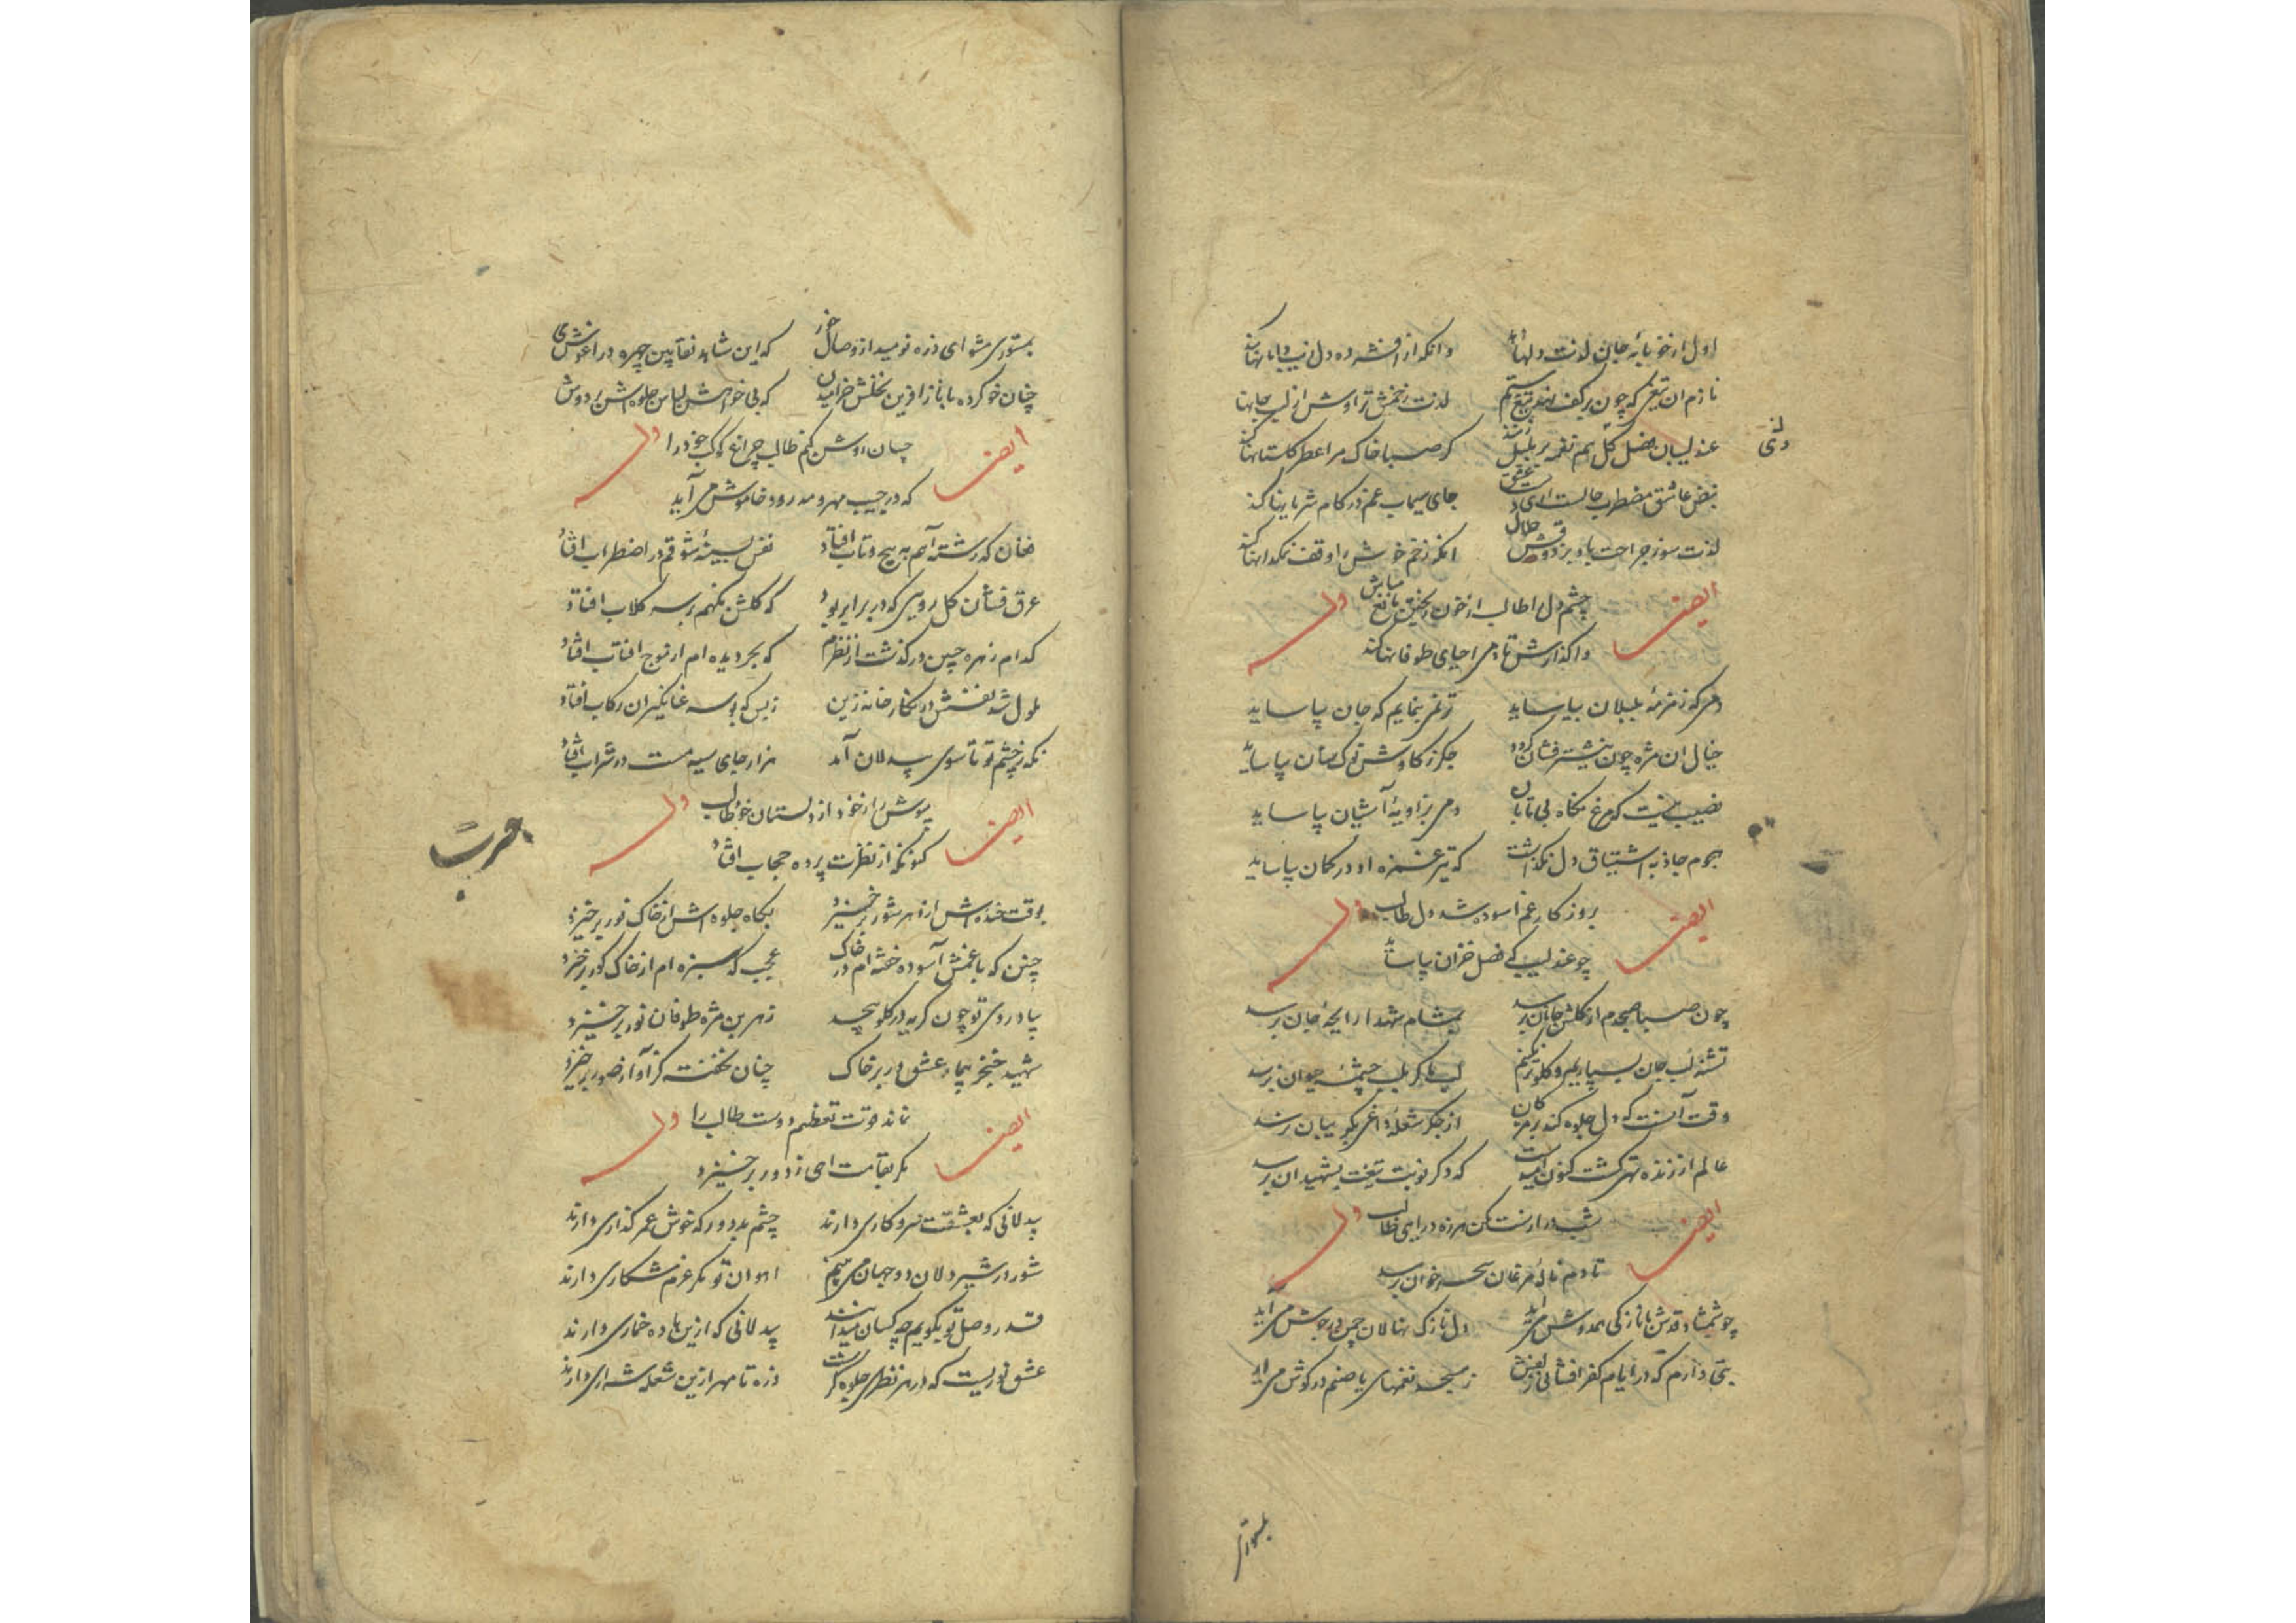 اول از خونابه جان لذت دلها دهد وانکه از افشرده دل زیب دامانها کند
نازم ان تیغی که چون بر کف نهد تیغ ستم لذت زخمش تراوش از لب جانها کند
عندلیبان فصل گل هم نغمه بلبل شدند کر صبا خاک مرا عطر کلستانها کند
نبض عاشق مضطرب حالست ای عشق جای سیماب غم در کام شریانها کند
لذت سوز جراحت باد بر دوقش حلال انکه زخم خویش را وقف نمکدانها کند
ایضا چشم دل طالب از خون ریختن مانع مباش وله
واکذارش تا دمی احیای طوفانها کند
دمی که زمزمه بلبلان بیاساید ترنمی بنمایم که جان بیاساید
خیال ان مژه چون نیشتر فشان کردد جکر ز کاوش نوک سنان بیاساید
نصیب نیست که مرغ نکاه بی تابان دمی بزاویه آشیان بیاساید
هجوم جاذبه اشتیاق دل نکذاشت که تیر غمزه او در کمان بیاساید
ایضا بروزکار غم اسوده شد دل طالب وله
چو عندلیب که فصل خزان بیاساید
چون صبا صبحدم از کلشن جانان برسد بمشام شهدا رایحه جان برسد
تشنه لب جان بسپاریم و کلو تر نکنیم لب ما کر بلب چشمه حیوان برسد
وقت آنست که دل جلوه کند بر مژکان از جکر شعله داغی بکریبان برسد
عالم از زنده تهی کشت کنون امیدست که دکر نوبت تیغت بشهیدان برسد
ایضا شب درازست مکن هرزه درایی طالب وله
تا دم ناله مرغان سحر خوان برسد
چو شمشاد قدش با نازکی همدوش می آید دل نازک نهالان چمن در جوش می آید
بتی دارم که در ایام کفر افشانی زلفش ز مسجد نغمهای یا صنم در کوش می اید
بمستوری مشو ای ذره نومید از وصال خور که این شاهد نقاب بین چهره در اغوش می
چنان خو کرده با ناز افرین نخلش خرامیدن که بی خواهش لباس جلوه اش بر دوش
ایضا چسان روشن کنم طالب چراغ کوکب خود را وله
که در جیب مهر و مه رود خاموش می آید
فغان که رشته آهم به پیچ و تاب افتاد نفس بسینه شوقم در اضطراب افتاد
عرق فشان کل رویی که در برابر بود که کلشن نکهم بر سر کلاب افتاد
کدام زهره جبین در کذشت از نظرم که بحر دیده ام از موج افتاب افتاد
ملول شد نفسش در نکارخانه زین ز بس که بوسه عنانکیر ان رکاب افتاد
نکه ز چشم تو تا سوی بیدلان آمد هزار جای سیه مست در شراب افتاد
ایضا بپوش راز خود از دلستان خود طالب وله
کنونکه از نظرت پرده حجاب افتاد
بوقت خنده اش از زهر شور برخیزد بکاه جلوه اش از خاک نور برخیزد
چنین که با غمش آسوده خفته ام در خاک عجب که سبزه ام از خاک کور برخیزد
بیاد روی تو چون کریه در کلو پیچد ز هر بن مژه طوفان نور برخیزد
شهید خنجر بیداد عشق در بر خاک چنان نخفته کز آواز صور برخیزد
ایضا نماند قوت تعظیم دوست طالب را وله
مکر بقامت اهی ز دور برخیزد
بیدلانی که بعشقت سر و کاری دارند چشم بد دور که خوش عمر کذاری دارند
شور در شیر دلان دو جهان می بینم اهوان تو مکر عزم شکاری دارند
قدر وصل تو بکویم چه کسان میدانند بیدلانی که ازین باده خماری دارند
عشق نوریست که در هر نظری جلوه کرست ذره تا مهر ازین شعله شراری دارند
بمستوری